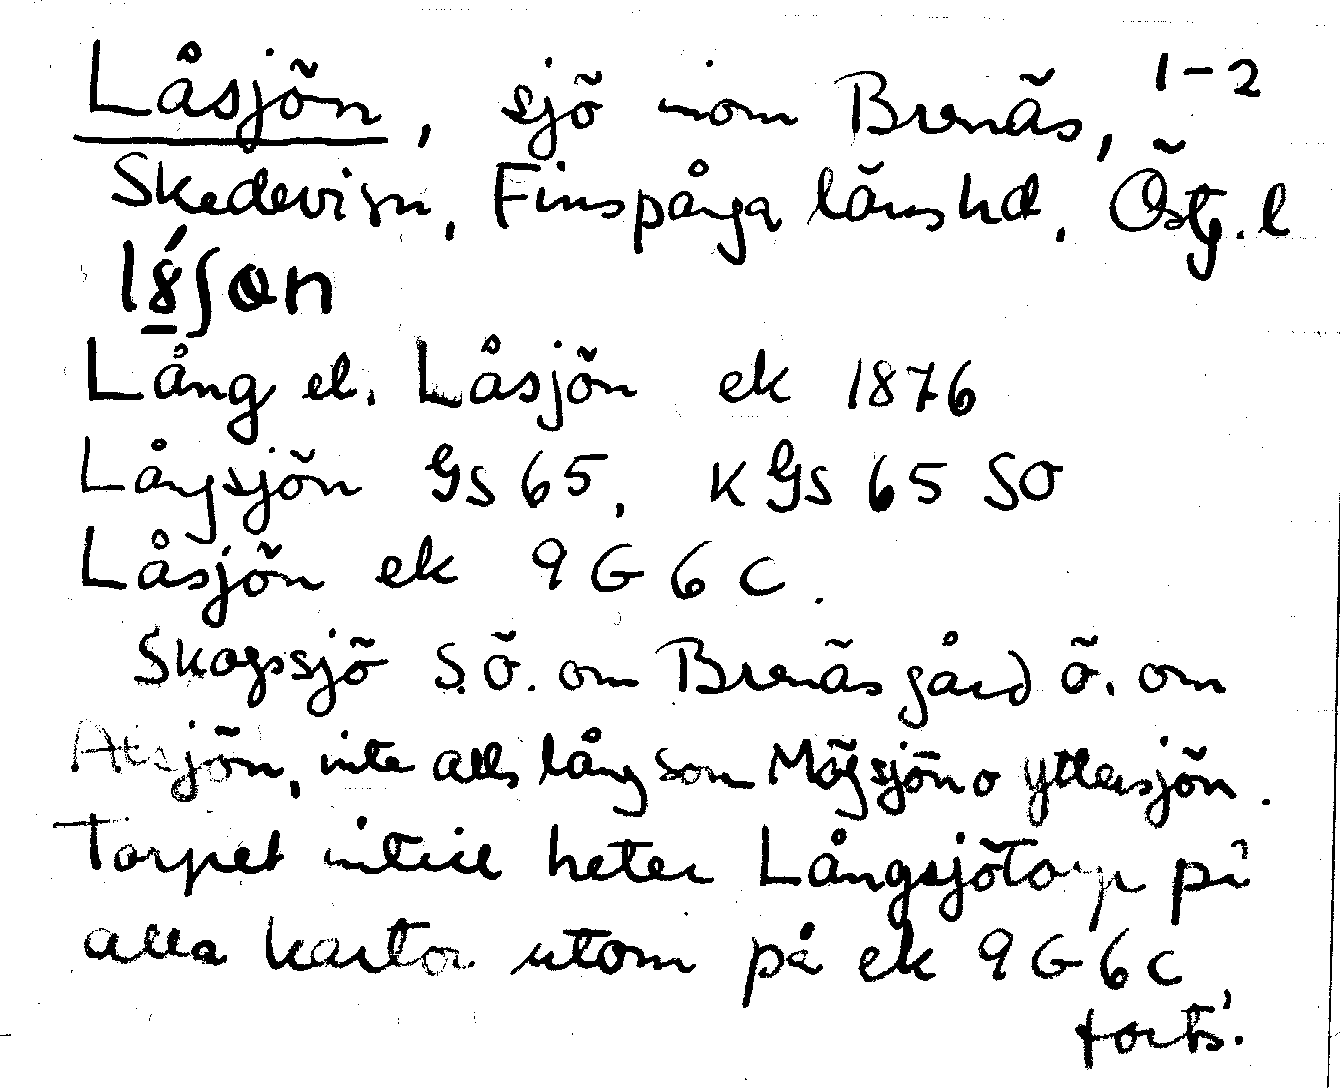 Låsjön, sjö inom Brenäs, 1-2
Skedevi sn, Finspånga läns hd, Östg. l
Lång el. Låsjön ek 1876
Långsjön GS 65, KGS 65 SO
Låsjön ek 9G6c.
Skogssjö S.Ö. om Brenäs gård ö. om
Atsjön, inte alls lång som Mögsjön o yttersjön.
Torpet intill heter Långsjötorp på
alla kartor utom på ek 9G6c
forts.